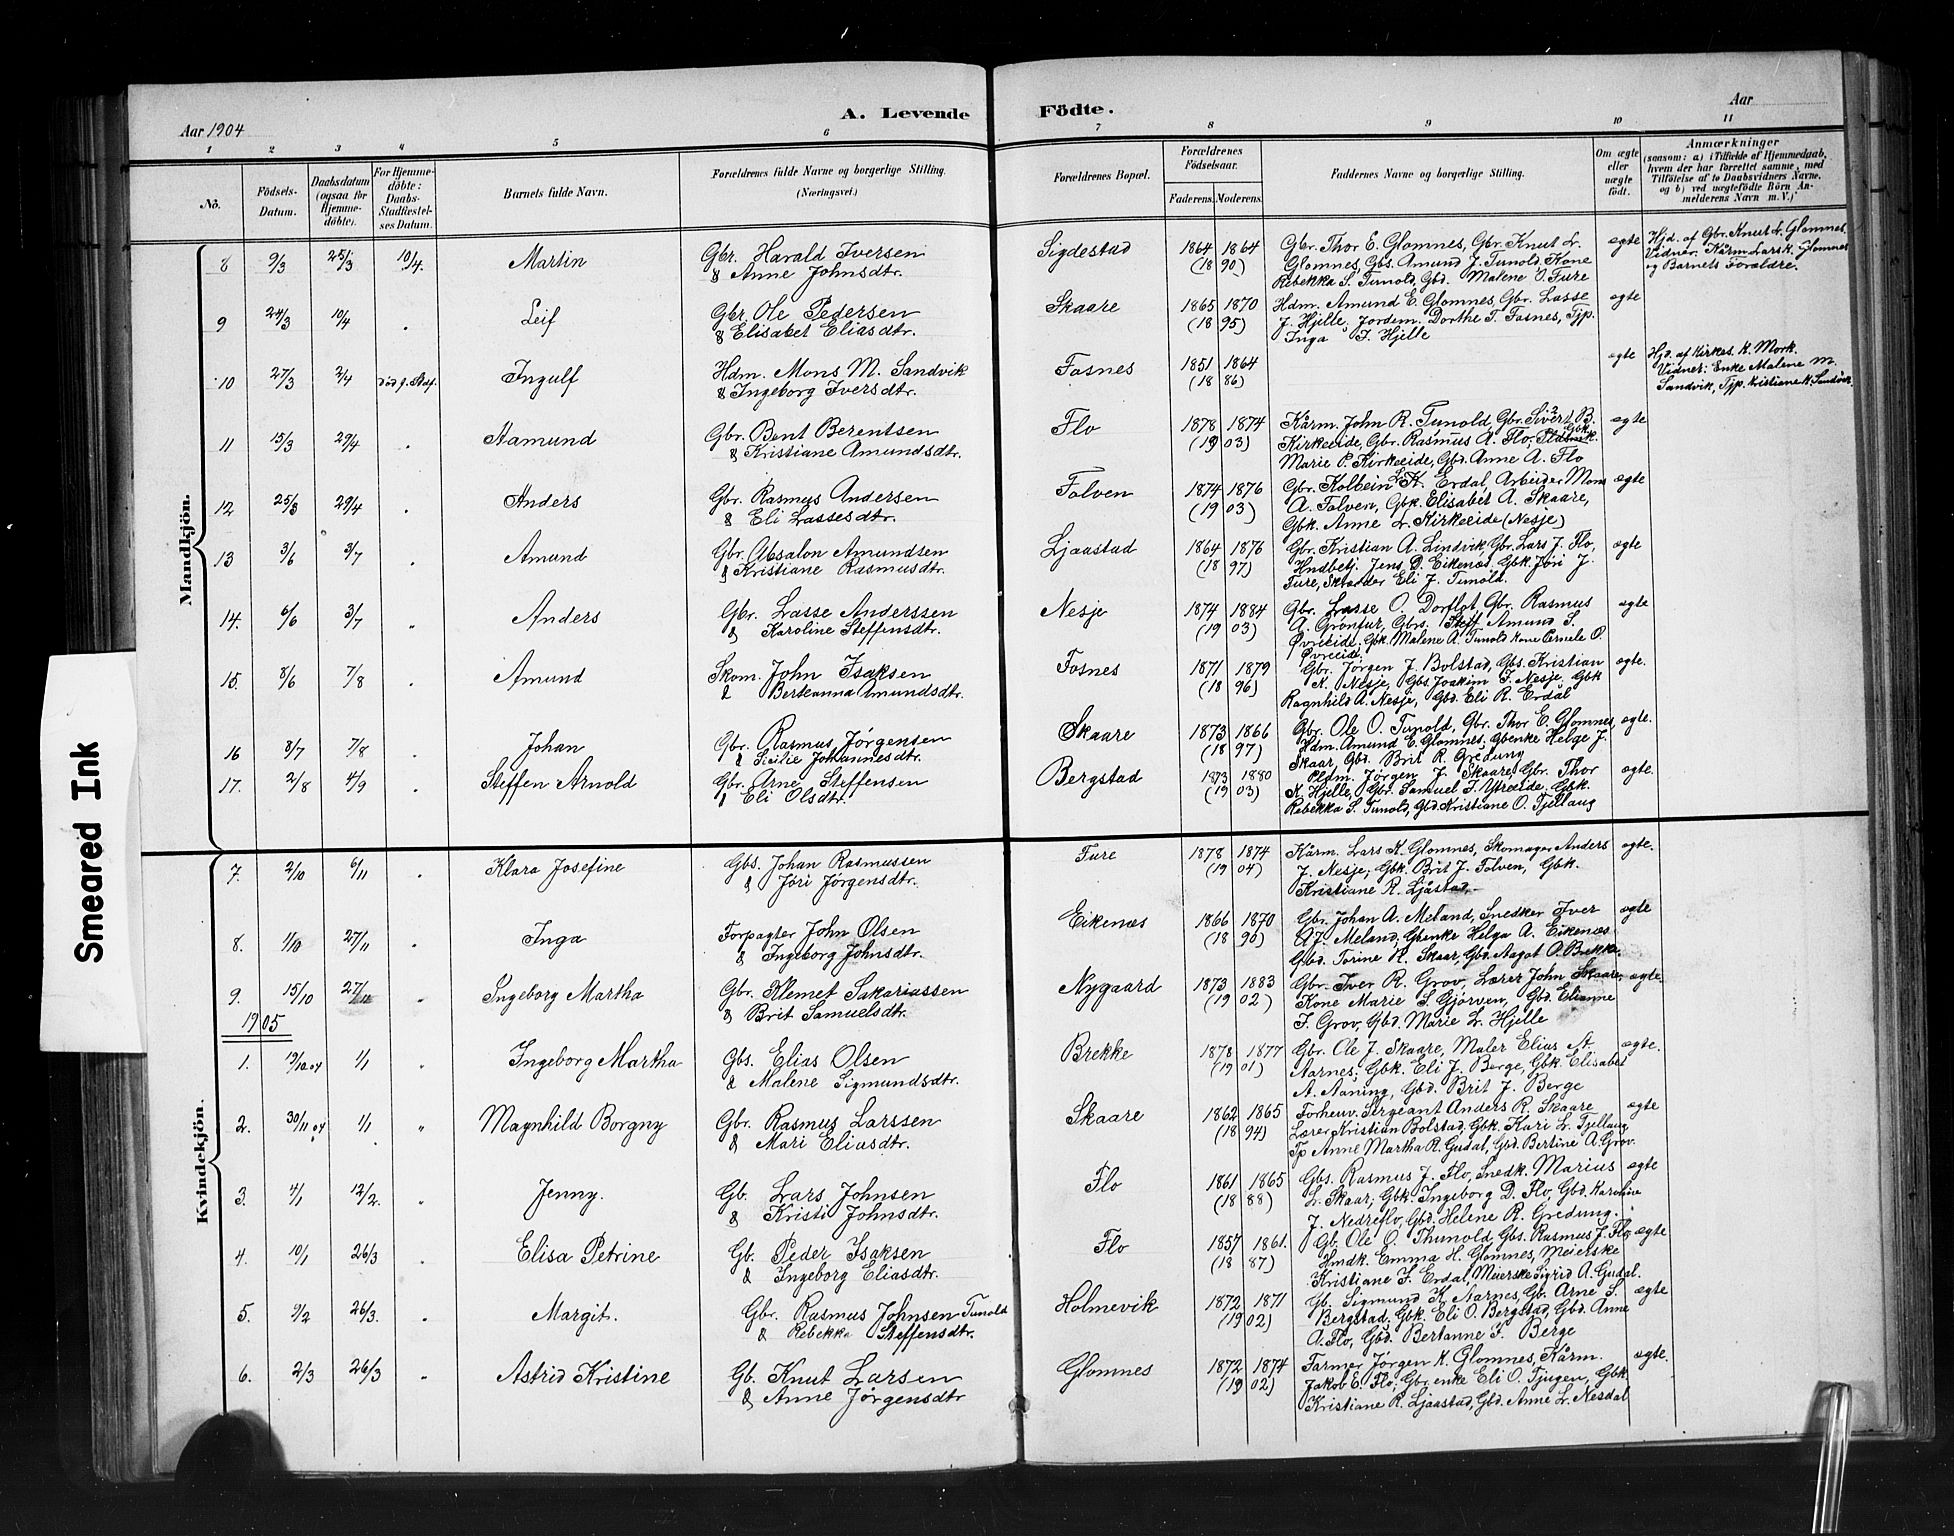 A. Levende Födte.
Aar 1904
Aar
1 2 3 4 5 6 7 8 9 10 11
No.
Födsels-Datum.
Daabsdatum (ogsaa for Hjemme-döbte).
For Hjemme-döbte: Daabs-Stadfæstel-ses Datum.
Barnets fulde Navn.
Forældrenes fulde Navne og borgerlige Stilling. (Næringsvei.)
Forældrenes Bopæl.
Forældrenes Födselsaar.
Faderens. Moderens.
Faddernes Navne og borgerlige Stilling.
Om ægte eller uægte födt.
Anmærkninger
(saasom: a) i Tilfælde af Hjemmedaab, hvem der har forrettet samme, med Tilföielse af to Daabsvidners Navne, og b) ved uægtefödte Börn An-melderens Navn m. V.)
Smeared Ink
Mandkjön.
8 9/3 25/3 10/4. Martin Gbr. Harald Iversen Sigdestad 1864 1864 Gbr. Thor E. Glomnes, Gbr. Knut L. ægte Hjd. af Gbr. Knut L. Glomnes.
& Anne Johnsdtr. (18 90) Glomnes, Gbs. Amund J. Tunold, Kone Vidner: Kårm. Lars K. Glomnes
Rebekka S. Tunold, Gbd. Malene O. Fure og Barnets Forældre.
9 24/3 10/4 . Leif Gbr. Ole Pedersen Skaare 1865 1870 Hdm. Amund E. Glomnes, Gbr. Lasse ægte
& Elisabet Eliasdtr. (18 95) J. Hjelle, Jordem. Dorthe T. Fosnes, Tjp.
Inga J. Hjelle
10 27/3 2/4 Ingulf Hdm. Mons M. Sandvik Fosnes 1851 1864 ægte Hjd. af Kirkes. K. Mork.
& Ingeborg Iversdtr. (18 86) Vidner: Enke Malene M.
Sandvik, Tjp. Kristiane K. Sandvik
11 15/3 29/4 . Aamund Gbr. Bent Berentsen Flo 1878 1874 Kårm. John R. Tunold, Gbr. Sivert B. ægte
& Kristiane Amundsdtr. (19 03) Kirkeeide, Gbr. Rasmus A. Flo, Gbk.
Marie P. Kirkeeide, Gbd. Anne A. Flo
12 25/3 29/4 . Anders Gbr. Rasmus Andersen Folven 1874 1876 Gbr. Kolbein K. Erdal, Arbeider Mons ægte
& Eli Lassesdtr. (19 03) A. Folven, Gbk. Elisabet A. Skaare,
Gbk. Anne L. Kirkeeide (Nesje)
13 3/6 3/7 . Amund Gbr. Absalon Amundsen Ljaastad 1864 1876 Gbr. Kristian A. Lindvik, Gbr. Lars J. Flo, ægte
& Kristiane Rasmusdtr. (18 97) Hndbetj. Jens D. Eikenæs, Gbk. Jøri J.
Fure, Eli J. Tunold.
14. 6/6 3/7 " Anders Gbr. Lasse Anderssen Nesje 1874 1884 Gbr. Lasse O. Dorflot, Gbr. Rasmus ægte
& Karoline Steffensdtr. (19 03) A. Grönfur, Gbrs. Amund S.
Øvreeide, Gbk. Malene A. Tunold, Kone Pernele O.
Øvreeide.
15. 8/6 7/8 . Amund Skom. John Isaksen Fosnes 1871 1879 Gbr. Jørgen J. Bolstad, Gbs. Kristian ægte.
& Berteanna Amundsdtr. (18 96) K. Nesje, Gbs. Joakim J. Nesje, Gbk
Ragnhild A. Nesje, Gbd. Eli R. Erdal
16 8/7 7/8 . Johan Gbr. Rasmus Jørgensen Skaare 1873 1866 Gbr. Ole O. Tunold, Gbr. Thor E. Glomnes, ægte.
& Sicilie Johannesdtr. (18 97) Hdm. Amund E. Glomnes, Gbenke Helge J.
Skaar, Gbd. Brit R. Gredung
17. 2/8 4/9 . Steffen Arnold Gbr. Arne Steffensen Bergstad 1873 1880 Pldm. Jörgen J. Skaare, Gbr. Thor ægte.
& Eli Olsdtr. (19 03) K. Hjelle, Gbr. Samuel J. Ytreeide, Gbk.
Rebekka S. Tunold, Gbd. Kristiane O. Tjellaug
Kvindekjön.
7. 2/10 6/11 . Klara Josefine Gbs. Johan Rasmussen Fure 1878 1874 Kårm. Lars K. Glomnes, Skomager Anders ægte.
& Jöri Jörgensdtr. (19 04) J. Nesje; Gbk. Brit J. Folven, Gbk.
Kristiane R. Ljåstad.
8. 1/10 27/11 . Inga Forpagter John Olsen Eikenæs 1866 1870 Gbr. Johan A. Meland, Snedker Iver ægte
& Ingeborg Johnsdtr. (18 96) A. J. Meland; Gbenke Helga A. Eikenæs
Gbd. Torine K. Skaar, Gbd. Aagot O. Brekke.
9. 15/10 27/11 " Ingeborg Martha Gbr. Klemet Sakariassen Nygaard 1873 1883 Gbr. Iver R. Grov, Lærer John Skaare, ægte.
& Brit Samuelsdtr. (19 02) Kone Marie S. Gjörven, Gbd. Elianne
J. Grov, Gbd. Marie L. Hjelle
1905
1. 19/10.04 1/1 " Ingeborg Martha Gbs. Elias Olsen Brekke 1878 1877 Gbr. Ole J. Skaare, Maler Elias A. ægte.
& Malene Sigmundsdtr. (19 01) Aarnes; Gbk. Eli J. Berge, Gbk. Elisabet
A. Aaning, Gbd. Brit J. Berge
2. 30/11 04 1/1 " Magnhild Borgny Gbr. Rasmus Larssen Skaare 1862 1865 Forhenv. Sergeant Anders R. Skaare ægte
& Mari Eliasdtr. (18 94) Lærer Kristian Bolstad, Gbk. Kari L. Tjellaug
Tp Anne Martha R. Gudal, Gbd. Bertine A. Grov.
3. 4/1 12/2. " Jenny. Gb. Lars Johnsen Flo 1861 1865 Gbs. Rasmus J. Flo, Snedk. Marius ægte
& Kristi Johnsdtr. (18 88) L. Skaar; Gbk. Ingeborg D. Flo, Gbd. Karoline
J. Nedreflo, Gbd. Helene R. Gredung.
4. 10/1 26/3 . Elisa Petrine Gb. Peder Isaksen Flo 1857 1861. Gb. Ole O. Thunold, Gbs. Rasmus J. Flo, ægte
& Ingeborg Eliasdtr. (18 87) Hmdk. Emma H. Glomnes, Meierske
Kristiane J. Erdal, Meierske Sigrid A. Gudal.
5. 9/2 26/3. . Margit. Gbr. Rasmus Johnsen Tunold Holmevik 1872 1871 Gb. Sigmund K. Aarnes, Gb. Arne S. ægte
& Rebekka Steffensdtr. (19 02) Bergstad; Gbk. Eli O. Bergstad, Gbd. Anne
A. Flo, Gbd. Bertanne J. Berge
6. 2/3 26/3 " Astrid Kristine Gb. Knut Larsen Glomnes 1872 1874 Farmer Jörgen K. Glomnes, Kårm. ægte.
& Anne Jörgensdtr (19 02) Jakob E. Flo; Gbr. enke Eli O. Tjugen, Gbk.
Kristiane R. Ljaastad, Gbd. Anne L. Nesdal